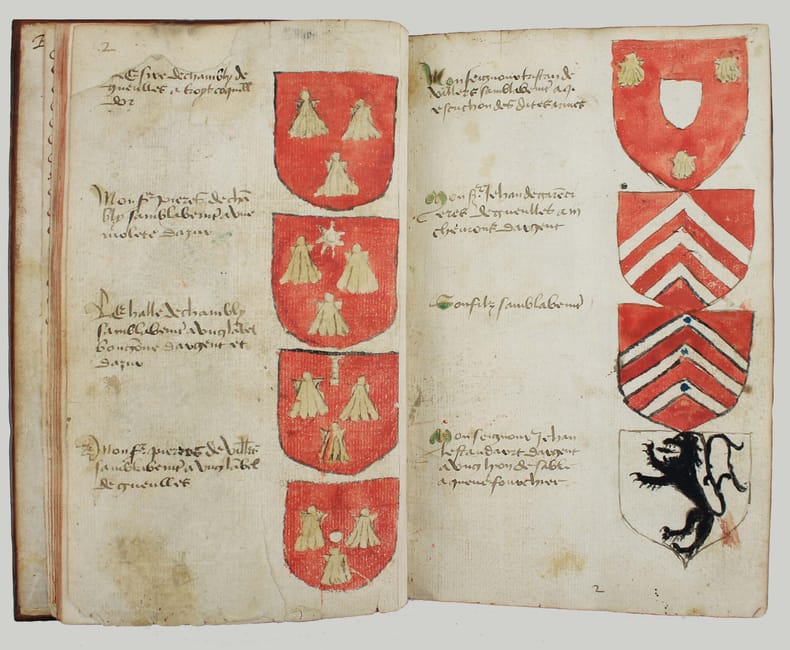 2
2
Sire de chambly de
gueulles a troys coquill
dor
Monsr pieres de chā
bly samblablemt a une
molete dazur
Le halle de chambly
samblablemt a ung label
dargent et
dazur
Monsr pierres de villers
samblablemt a ung label
de gueulles
Monseignour tristan de
villers samblablemt a
escuchon des dites armes
Monsr Jehan de
de gueulles a iii
chevrons dargent
Son filz samblablemt
Monseignour Jehan
lestandart dargent
a ung lyon de sable
a queue fourchier
2